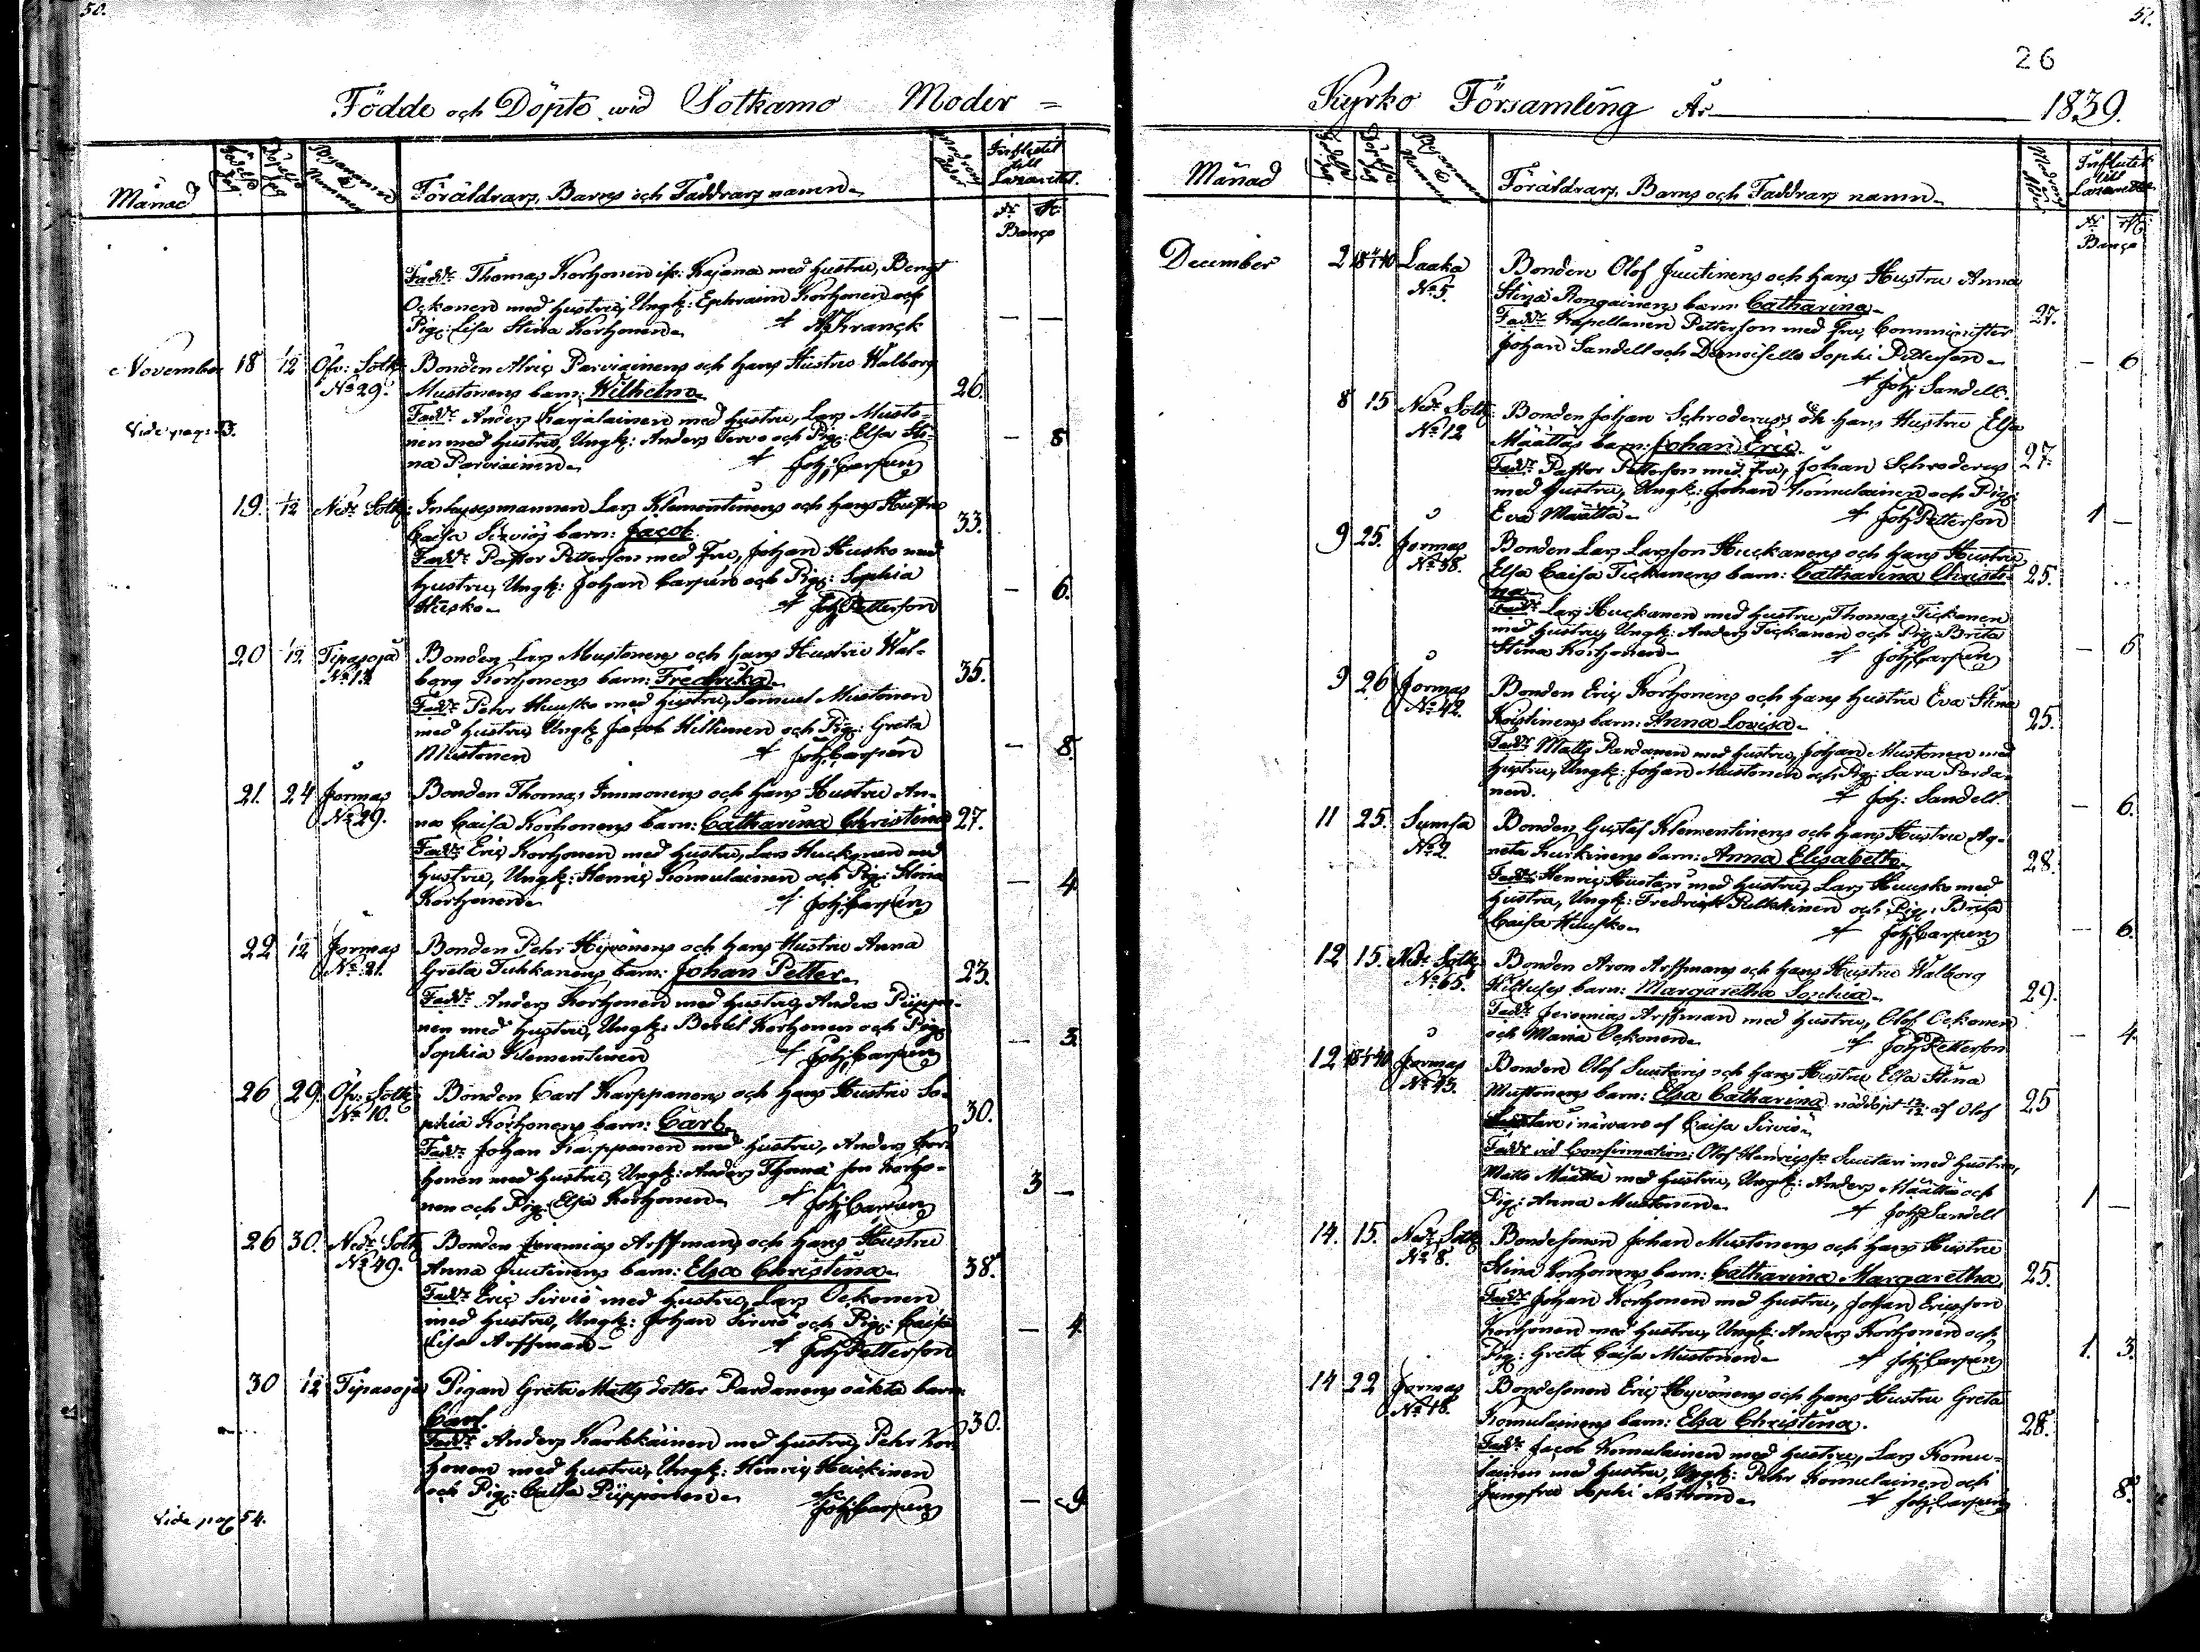 50.
Födde och Döpte wid Sotkamo Moder =
Månad
Födelse dag
Döpelse dag
Byanamn & Nummer
Föräldrars, Barns och Faddrars namn.
Modrens ålder
Influtit till Lazarettet.
Banco
Fadd: Thomas Korhonen ifr: Kajana med hustru, Bengt
Ockonen med hustru, Ungk: Ephraim Korhonen och
Pig: Lisa Stina Korhonen. Kranck
November 18 1/12 Öfv: Sotk: Bonden Alric Parviainens och hans Hustru Walborg
No 29. Mustonens barn: Wilhelm 26.
Fadd: Anders Karjalainen med hustru, Lars Musto-
Vide pag: 53. nen med hustru, Ungk: Anders Tervo och Pig: Elsa Sti- — 8
na Parviainen. Joh: Carpen
19. 1/12 Ned: Sotk: Inhysesmannen Lars Klementinens och hans Hustru
Caisa Sirviös barn: Jacob. 33.
Fadd: Pastor Petterson med Fru, Johan Husko med
hustru, Ungk: Johan Carpén och Pig: Sophia — 6.
Husko. Joh: Petterson
20 1/12 Tipasoja Bonden Lars Mustonens och hans Hustru Wal-
No 13. borg Korhonens barn: Fredrika. 35.
Fadd: Petter Husko med hustru, Samuel Mustonen
med hustru, Ungk: Jacob Hiltunen och Pig: Greta
Mustonen Joh: Carpén — 8.
21. 24 Jormas Bonden Thomas Immonens och hans Hustru An-
No 29. na Caisa Korhonens barn: Catharina Christina 27.
Fadd: Eric Korhonen med hustru, Lars Huckonen med
hustru, Ungk: Henric Komulainen och Pig: Stina — 4
Korhonen. Joh: Carpen
22 1/12 Jormas Bonden Pehr Hyvönens och hans Hustru Anna
No 21. Greta Tuhkanens barn: Johan Petter. 23.
Fadd: Anders Korhonen med hustru, Anders Pippo-
nen med hustru, Ungk: Bertel Korhonen och Pig:
Sophia Klementinen Joh: Carpen — 3.
26 29. Öfv: Sotk: Bonden Carl Karppanens och hans Hustru So-
No 10. phia Korhonens barn: Carl. 30.
Fadd: Johan Karppanen med hustru, Anders Kor-
honen med hustru, Ungk: Anders Thomæ son Korho-
nen och Pig: Elsa Korhonen. Joh: Carpen 3 —
26 30. Ned: Sotk: Bonden Jeremias Arffmans och hans Hustru
No 49. Anna Juutinens barn: Elsa Christina. 38.
Fadd: Eric Sirviö med hustru, Lars Ockonen
med hustru, Ungk: Johan Sirviö och Pig: Caisa — 4.
Lisa Arffman. Joh: Petterson
30 1/12 Tipasoja Pigan Greta Matts dotter Pardanens oäkta barn
Carl. 30.
Fadd: Anders Karkkäinen med hustru, Pehr Kor-
honen med hustru, Ungk: Henric Heickinen
och Pig: Caisa Pipponen. Joh: Carpen — 9
Vide pag 54.
51.
26
Kyrko Församling År 1839.
Månad
Födelse dag.
Döpelse dag
Byanamn & Nummer
Föräldrars, Barns och Faddrars namn.
Modrens ålder
Influtit till Lazarettet
Banco
December 2 18 1/1 40 Laaka Bonden Olof Juutinens och hans Hustru Anna
No 5. Stina Rongainens barn Catharina. 27.
Fadd: Kapellanen Petterson med fru, Comminister
Johan Sandell och Demoiselle Sophi Petterson. — 6
Joh: Sandell.
8 15 Ned: Sotk: Bonden Johan Schroderus's och hans Hustru Elsa
No 12 Määttäs barn: Johan Eric. 27.
Fadd: Pastor Petterson med Fru, Johan Schroderus
med hustru, Ungk: Johan Komulainen och Pig:
Eva Määttä. Joh: Petterson 1 —
9 25. Jormas Bonden Lars Larsson Huckanens och hans Hustru
No 38. Elsa Caisa Tickanens barn: Catharina Christi- 25.
na
Fadd: Lars Huckanen med hustru, Thomas Tickanen
med hustru, Ungk: Anders Tickanen och Pig: Brita
Stina Korhonen. Joh: Carpen — 6
9 26 Jormas Bonden Eric Korhonens och hans Hustru Eva Stina
No 42. Keistinens barn: Anna Lovisa. 25.
Fadd: Matts Pardanen med hustru, Johan Mustonen med
hustru, Ungk: Johan Mustonen och Pig: Sara Parda-
nen. Joh: Sandell. — 6.
11 25. Sumsa Bonden Gustaf Klementinens och hans Hustru Ag-
No 2. neta Kurkinens barn: Anna Elisabeth. 28.
Fadd: Henric Suutari med hustru, Lars Huusko med
hustru, Ungk: Fredrick Pulkkinen och Pig: Brita
Caisa Huusko. Joh: Carpen — 6.
12 15. Ned: Sotk: Bonden Aron Arffmans och hans Hustru Walborg
No 65. barn: Margaretha Sophia. 29.
Fadd: Jeremias Arffman med hustru, Olof Ockonen
och Maria Ockonen. Joh: Petterson — 4.
12 18 1/1 40 Jormas Bonden Olof Suutaris och hans Hustru Elsa Stina
No 43. Mustonens barn: Elsa Catharina nöddöpt 12/12 af Olof 25
Suutari i närvaro af Caisa Sirviö.
Fadd: vid Confirmation: Olof Henricss: Suutari med hustru,
Matts Määttä med hustru, Ungk: Anders Määttä och
Pig: Anna Mustonen. Joh: Sandell 1 —
14. 15. Ned: Sotk: Bondesonen Johan Mustonens och hans Hustru
No 8. Stina Korhonens barn: Catharina Margaretha, 25.
Fadd: Johan Korhonen med hustru, Johan Ericsson
Korhonen med hustru, Ungk: Anders Korhonen och
Pig: Greta Caisa Mustonen. Joh: Carpen 1. 3.
14 22 Jormas Bondesonen Eric Hyvönens och hans Hustru Greta
No 18. Komulainens barn: Elsa Christina. 28.
Fadd: Jacob Komulainen med hustru, Lars Komu-
lainen med hustru, Ungk: Pehr Komulainen och
Jungfru Sophi Aström. Joh: Carpen 8.